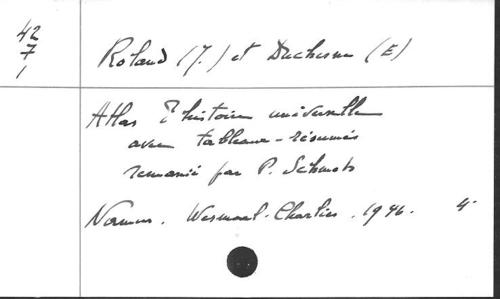 42
7
1
Roland (J.) et Duchesne (E)
Atlas d'histoire universelle
avec tableaux-résumés
remanié par P. Schmets
Namur. Wesmael-Charlier. 1946. 4°